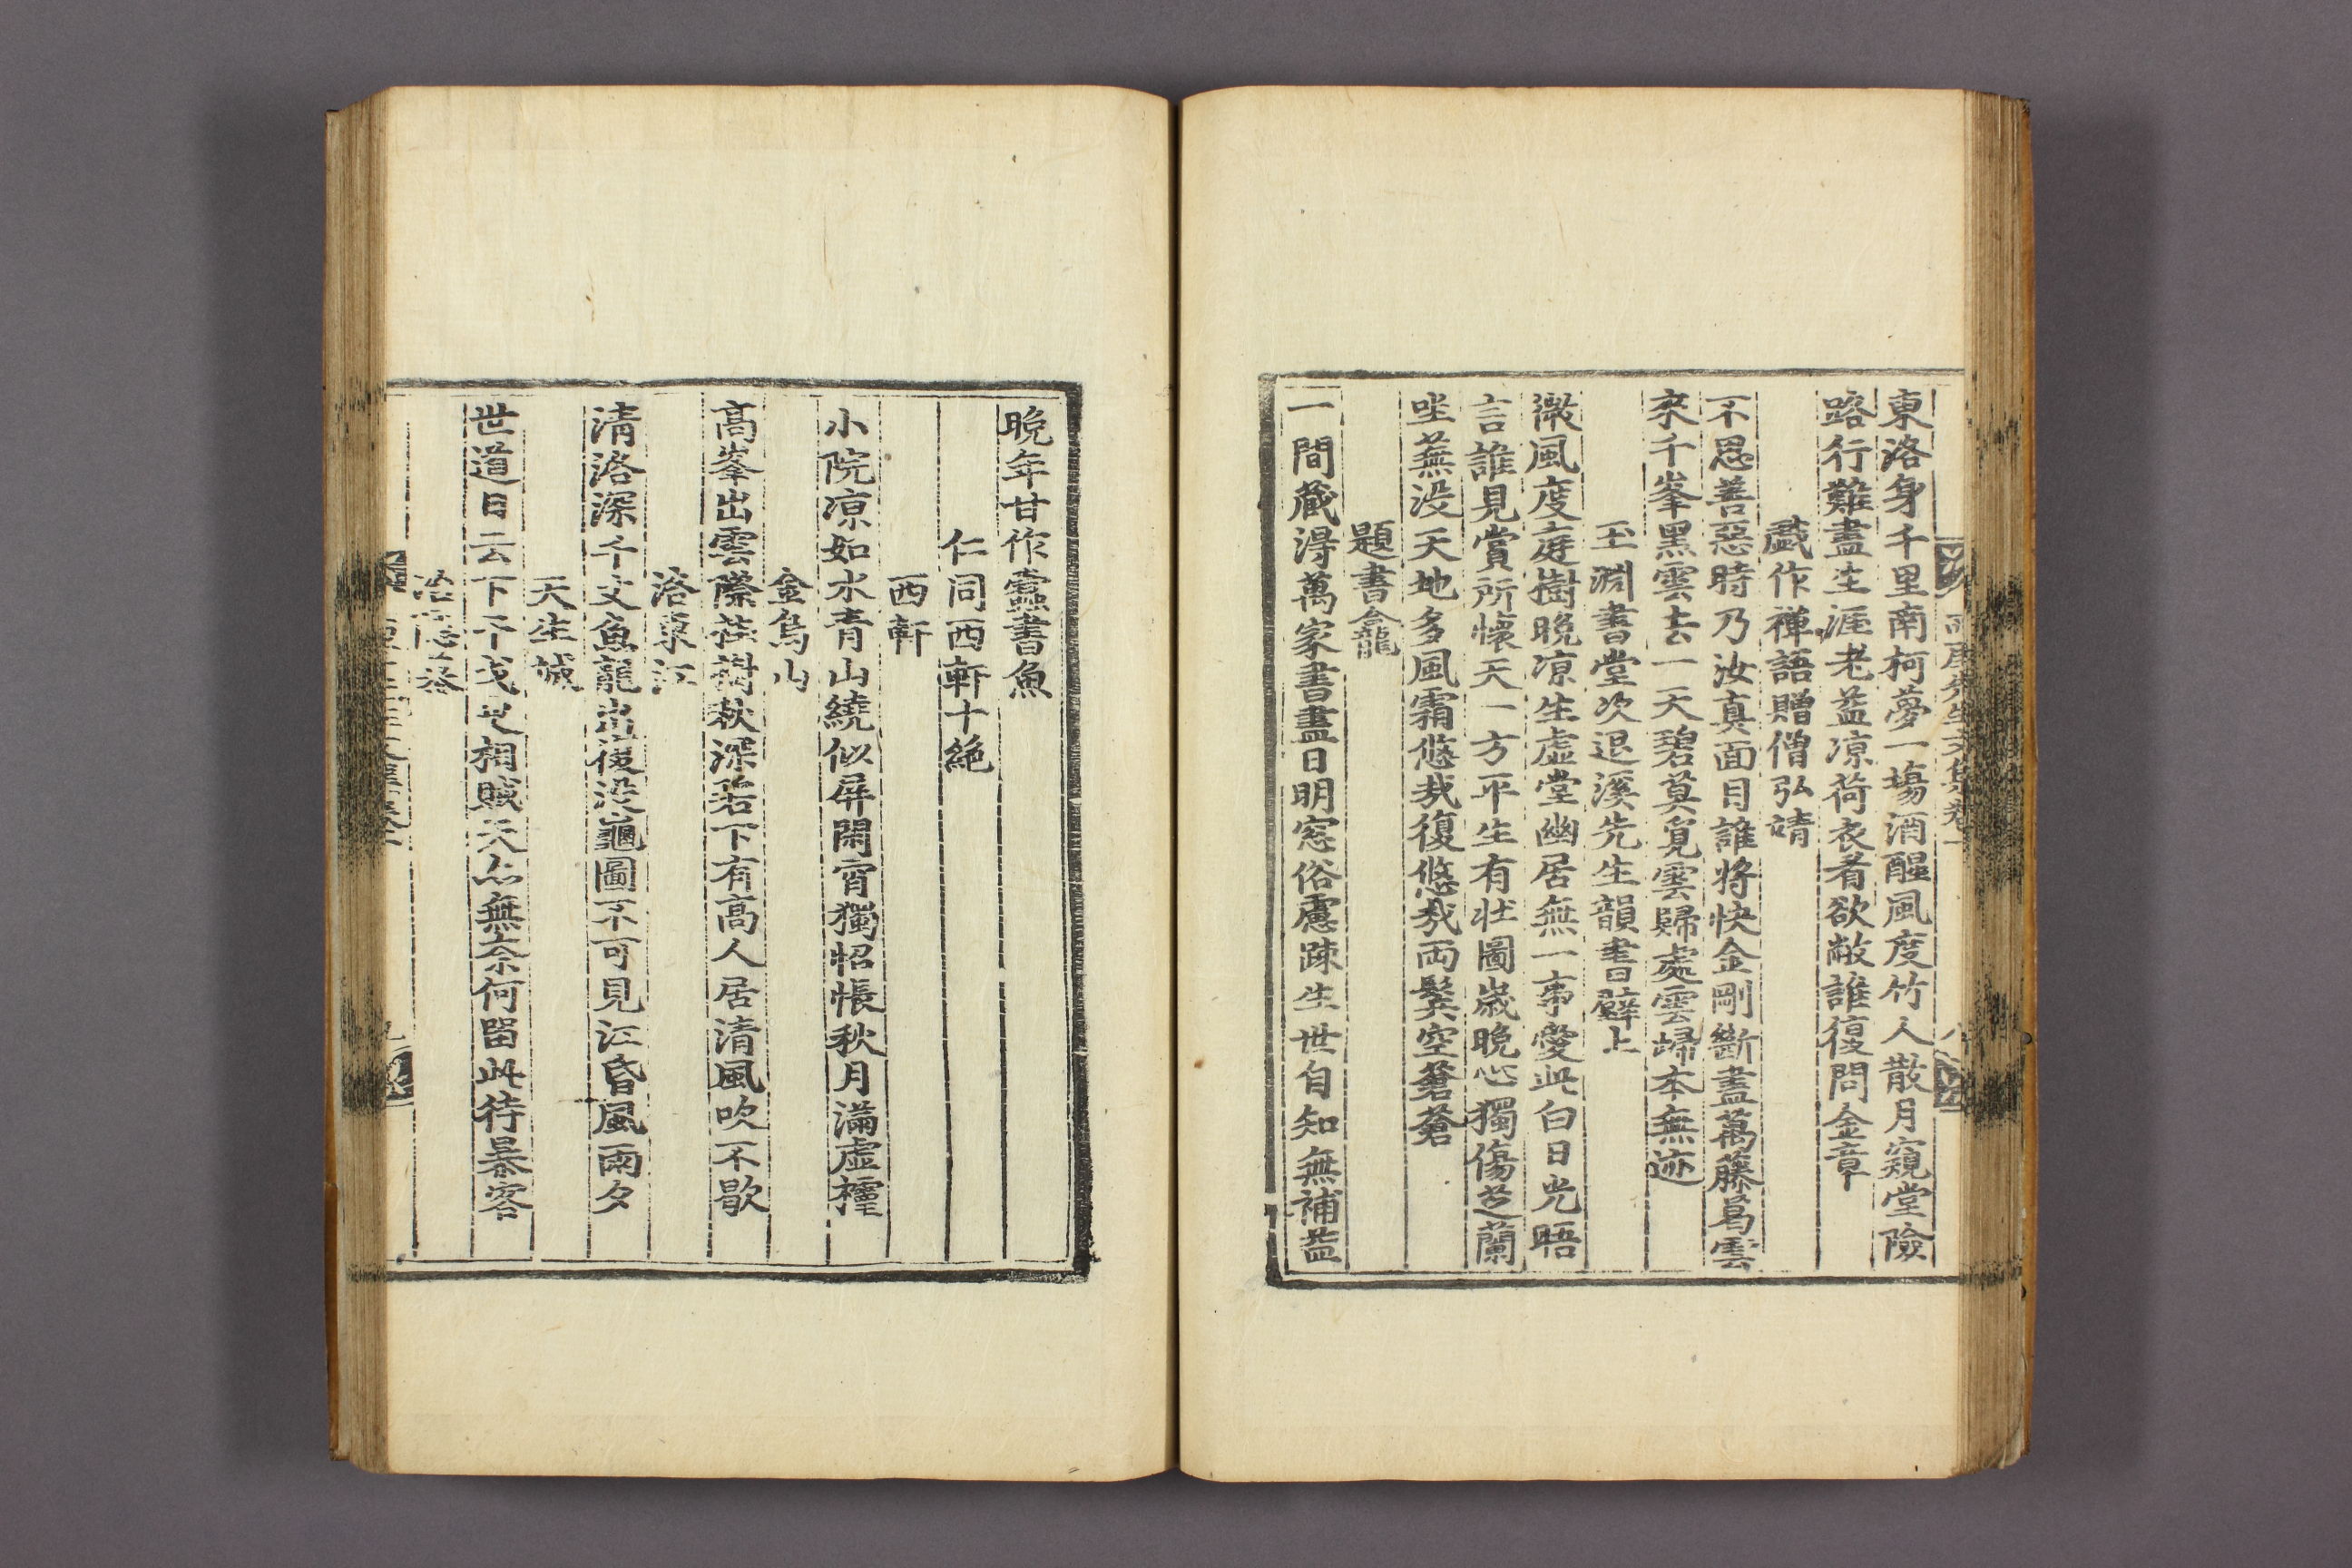 東洛身千里南柯夢一場酒醒風度竹人散月窺堂險
路行難盡生涯老益凉荷衣看欲敝誰復問金章
戱作禪語贈僧弘靖
不思善惡時乃汝真面目誰將快金剛斷盡萬藤葛雲
來千峯黑雲去一天碧莫覓雲歸處雲歸本無迹
玉淵書堂次退溪先生韻書壁上
微風度庭樹晩凉生虛堂幽居無一事愛此白日光晤
言誰見賞所懷天一方平生有壯圖歲晩心獨傷芝蘭
坐蕪沒天地多風霜悠哉復悠哉両鬢空蒼蒼
題書龕
一間藏得萬家書盡日明窓俗慮踈生世自知無補益
晩年甘作蠹書魚
仁同西軒十絶
西軒
小院凉如水青山繞似屏閑宵獨怊悵秋月滿虛欞
金烏山
高峯出雲際
秋深岩下有高人居清風吹不歇
洛東江
清洛深千丈魚龍出復没龜圖不可見江昏風雨夕
天生城
世道日云下干戈相賊天心無奈何留此待暴客